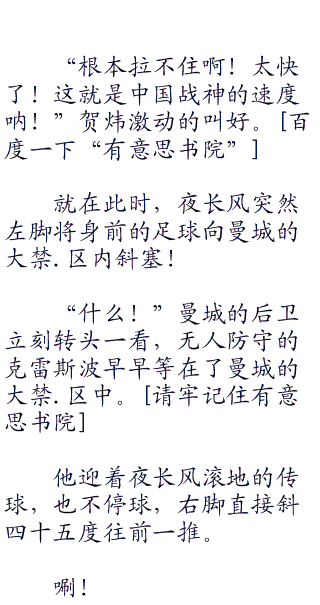 “根本拉不住啊！太快
了！这就是中国战神的速度
呐！”贺炜激动的叫好。[百
度一下“有意思书院”]
就在此时，夜长风突然
左脚将身前的足球向曼城的
大禁.区内斜塞！
“什么！”曼城的后卫
立刻转头一看，无人防守的
克雷斯波早早等在了曼城的
大禁.区中。[请牢记住有意
思书院]
他迎着夜长风滚地的传
球，也不停球，右脚直接斜
四十五度往前一推。
唰！